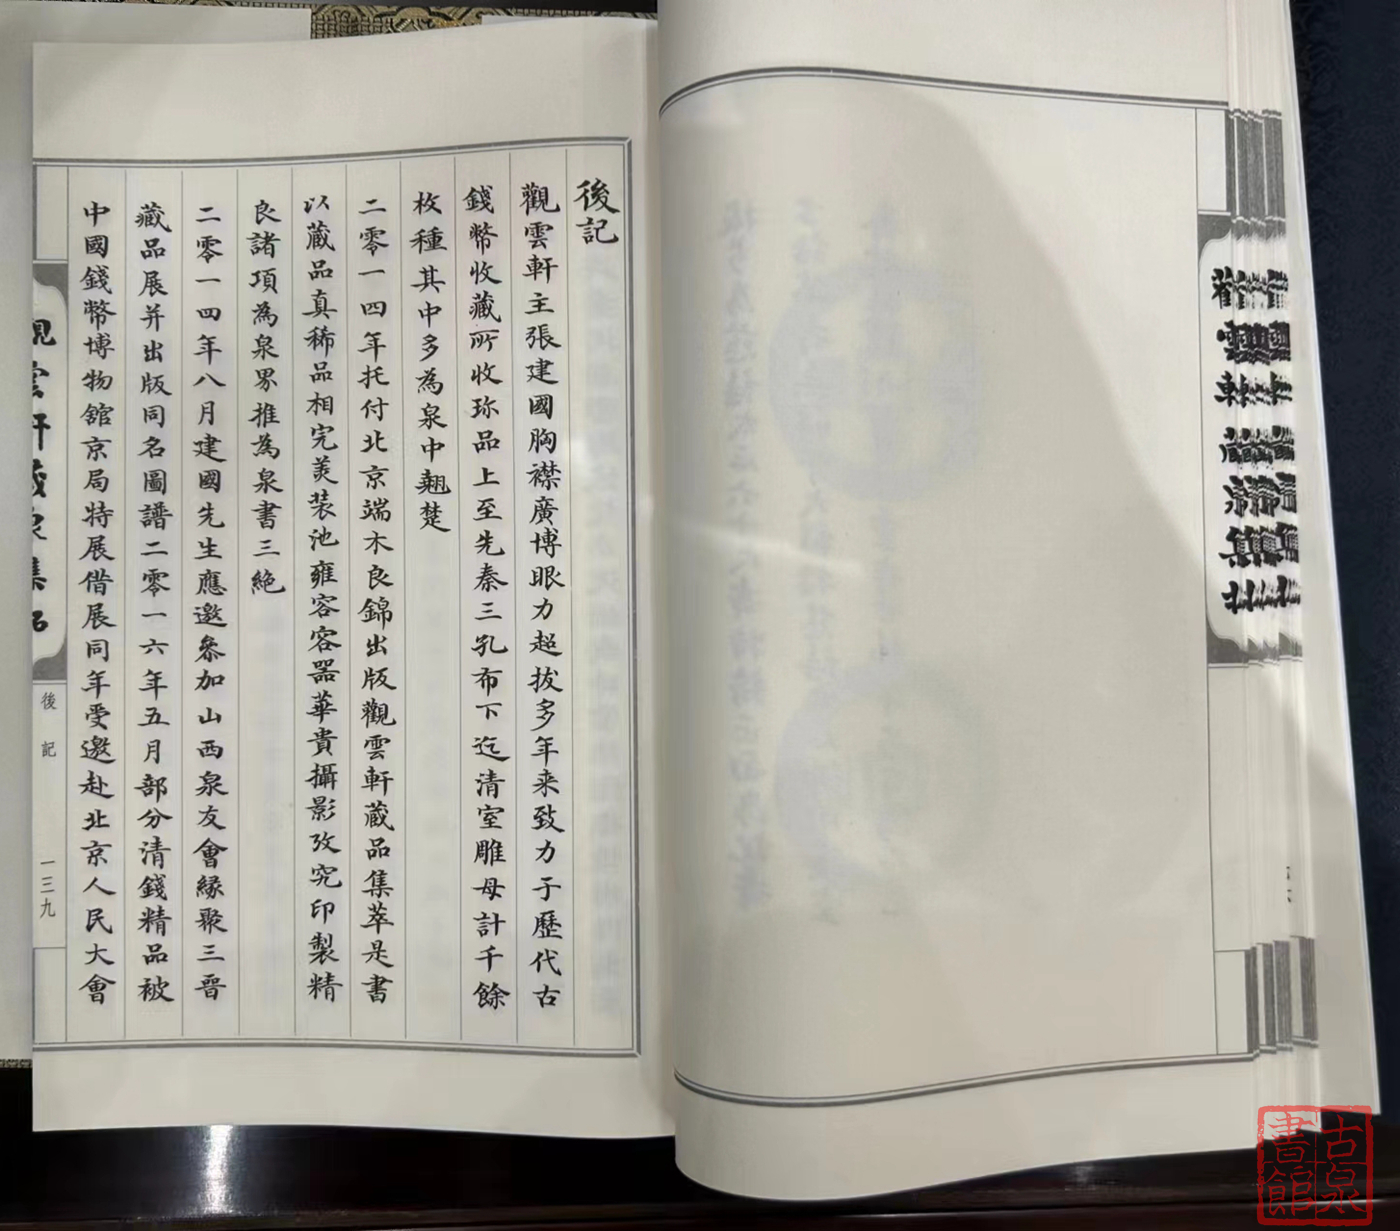 後記
觀雲軒主張建國胸襟廣博眼力超拔多年来致力于歷代古
錢幣收藏所收珎品上至先秦三孔布下迄清室雕母計千餘
枚種其中多為泉中翹楚
二零一四年托付北京端木良錦出版觀雲軒藏品集萃是書
以藏品真稀品相完美装池雍容容器華貴攝影攷究印製精
良諸項為泉界推為泉書三絶
二零一四年八月建國先生應邀叅加山西泉友會緣聚三晋
藏品展并出版同名圖譜二零一六年五月部分清錢精品被
中國錢幣博物舘京局特展借展同年受邀赴北京人民大會
觀雲軒藏泉集
後記
一三九
古泉書館